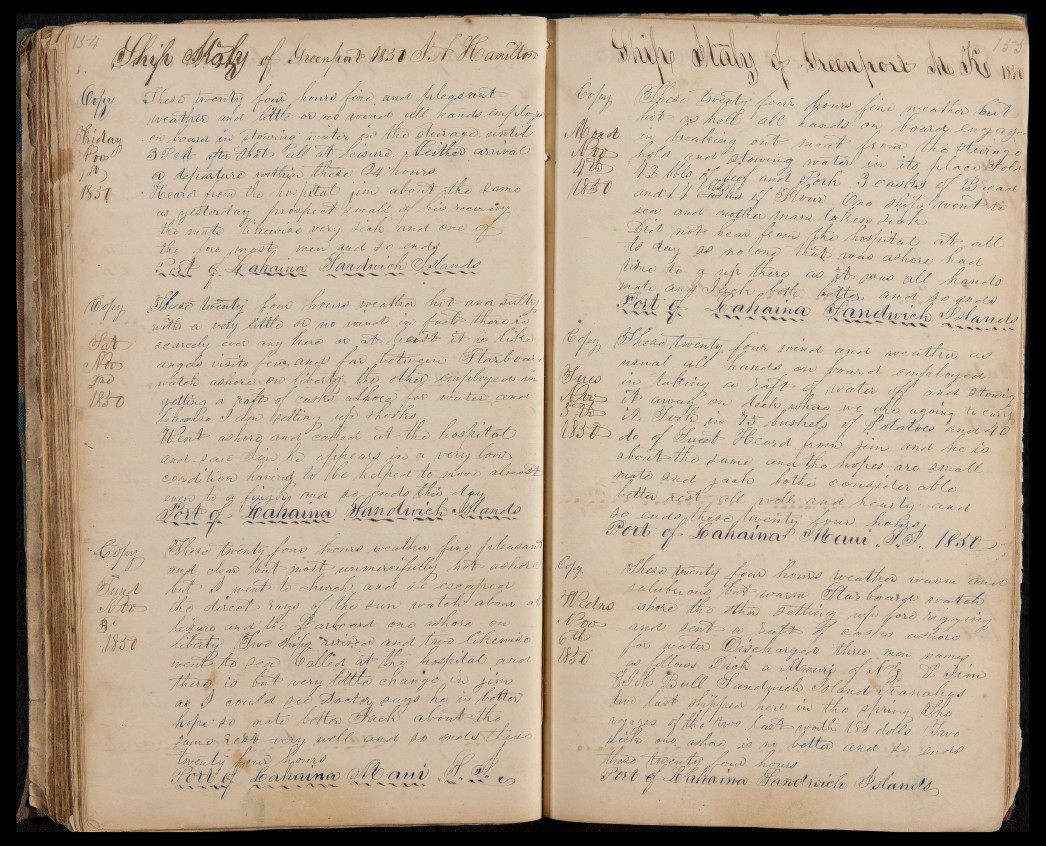 154
Ship Italy of Greenport 1850 J A Hamilton
Copy
Friday
Nov
1st
1850
These twenty four hours fine and pleasant
weather and little or no wind all hands employed
on board in stowing water in the steerage until
3 P.M. after that all at leisure. Neither arrival
or departure within these 24 hours
Heard from the hospital jim about the same
as yesterday prospect small of his recovery
the mate likewise very sick and one of
the fore mast men and so ends
Port of Lahaina Sandwich Islands
Copy
Sat
Nov
2nd
1850
These twenty four hours weather hot and sultry
with a very little or no wind in fact there is
scarcely ever any here or at least it is like
angels visits few and far between Starboard
watch ashore on liberty the other employed in
getting a raft of casks ashore for water and
likewise I don setting up shooks
Went ashore and called at the hospital
and saw Jim he appears in a very low
condition having to be helped to move almost
even to a finger and so ends this day
Port of Lahaina Sandwich Islands
Copy
Sund
Nov
3d
1850
These twenty four hours weather fine pleasant
and clear but most unmercifully hot ashore
but I went to church and so escaped
the direct rays of the sun watch aboar at
leisure and the Larboard one ashore on
liberty Two ships arrived and two likewise
went to sea Called at the hospital and
there is but very little change in jim
as I could see Doctor says he is better
hope so mate better Jack about the
same rest very well and so ends these
twenty four hours
Port of Lahaina Maui S. I.
155
Ship Italy of Greenport 1850
Copy
Mond
Nov
4th
1850
These twenty four hours fine weather but
hot as hell all hands on board engaged
in breaking out meat from the steerage
hold and stowing water in its place Stole
42 bbls of beef and Pork 3 casks of Bread
and 14 of Flour One ship went to
sea and another man taken sick
Did not hear from the hospital at all
to day as no one that was ashore had
time to go up there as it was all hands
mate and Jack both better and so ends
Port of Lahaina Sandwich Islands
Copy
Tues
Nov
5th
1850
These twenty four wind and weather as
usual all hands on board employed
in taking a raft of water off and stowing
it away on deck where we are agoing to carry
it Took in 75 bushels of Potatoes and 40
do of Sweet Heard from jim and he is
about the same and the hopes are small
mate and jack bothe considerable
better rest all well and hearty and
so ends these twenty four hours
Port of Lahaina Maui S. I. 1850
Copy
Wednes
Nov
6th
1850
These twenty four hours weather warm and
salubrious but warm Starboard watch
ashore the other rattling up fore rigging
and sent a raft of casks ashore
for water Discharged three men names
as follows Dick a Maori of N Z
Bull Sandwich Island Kanakas
two last shipped here in the spring The
voyages of the two last worth 180 dolls Two
sick one ashore is no better and so ends
these twenty four hours
Port of Lahaina Sandwich Islands